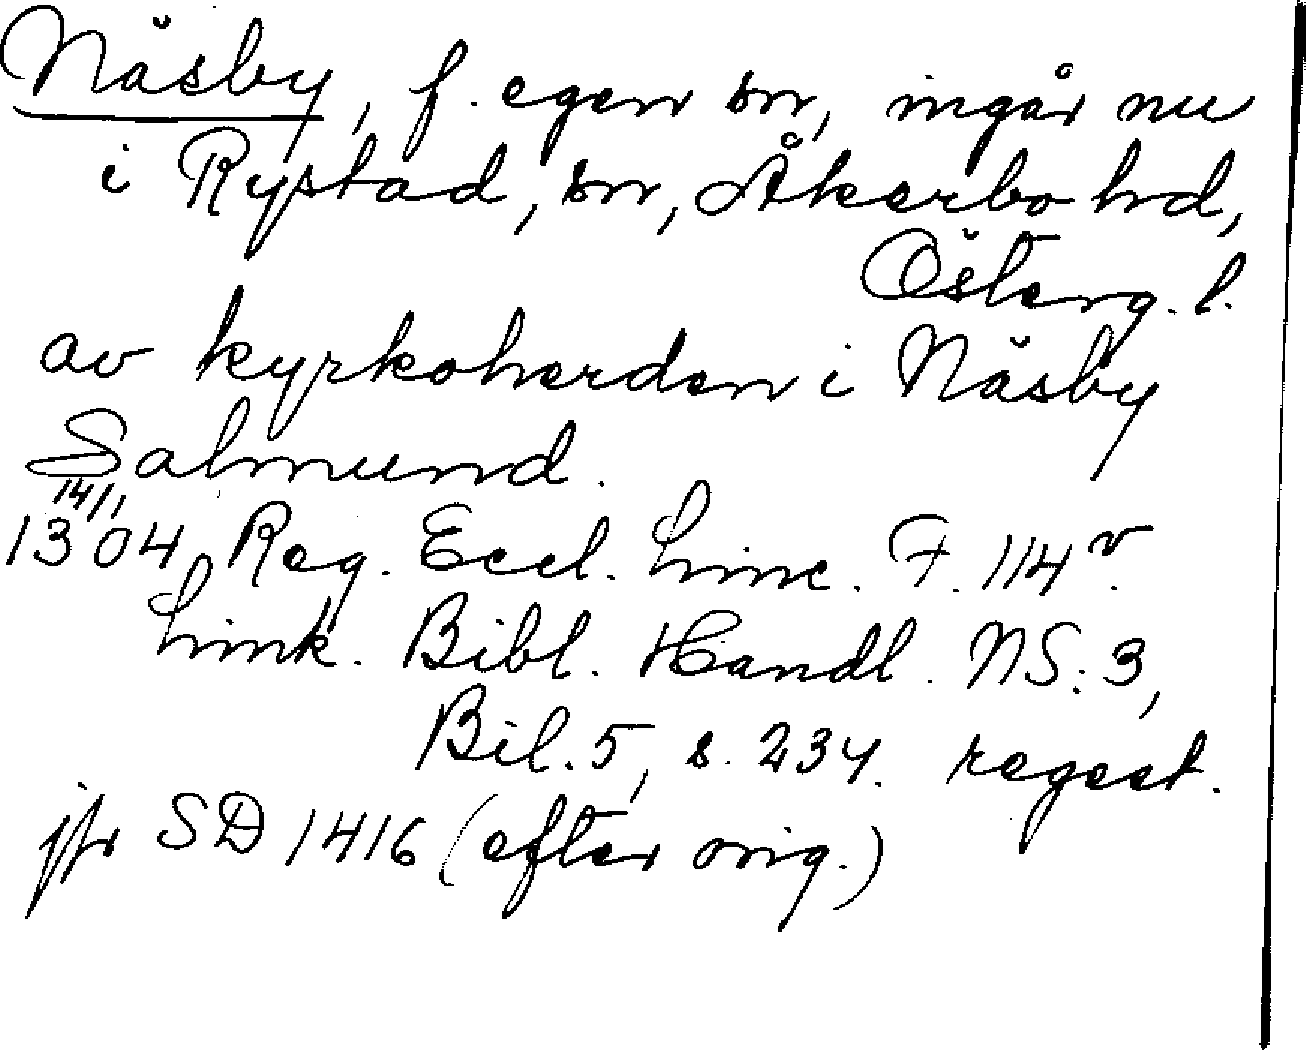 Näsby, f. egen sn, ingår nu
i Rystad, sn, Åkerbo hd,
Österg. l.
av kyrkoherden i Näsby
Salmund.
14/1
1304 Reg. Eccl. Linc. F. 114 v.
Link. Bibl. Handl. NS: 3,
Bil. 5, s. 234. regest.
jfr SD 1416 (efter orig.)